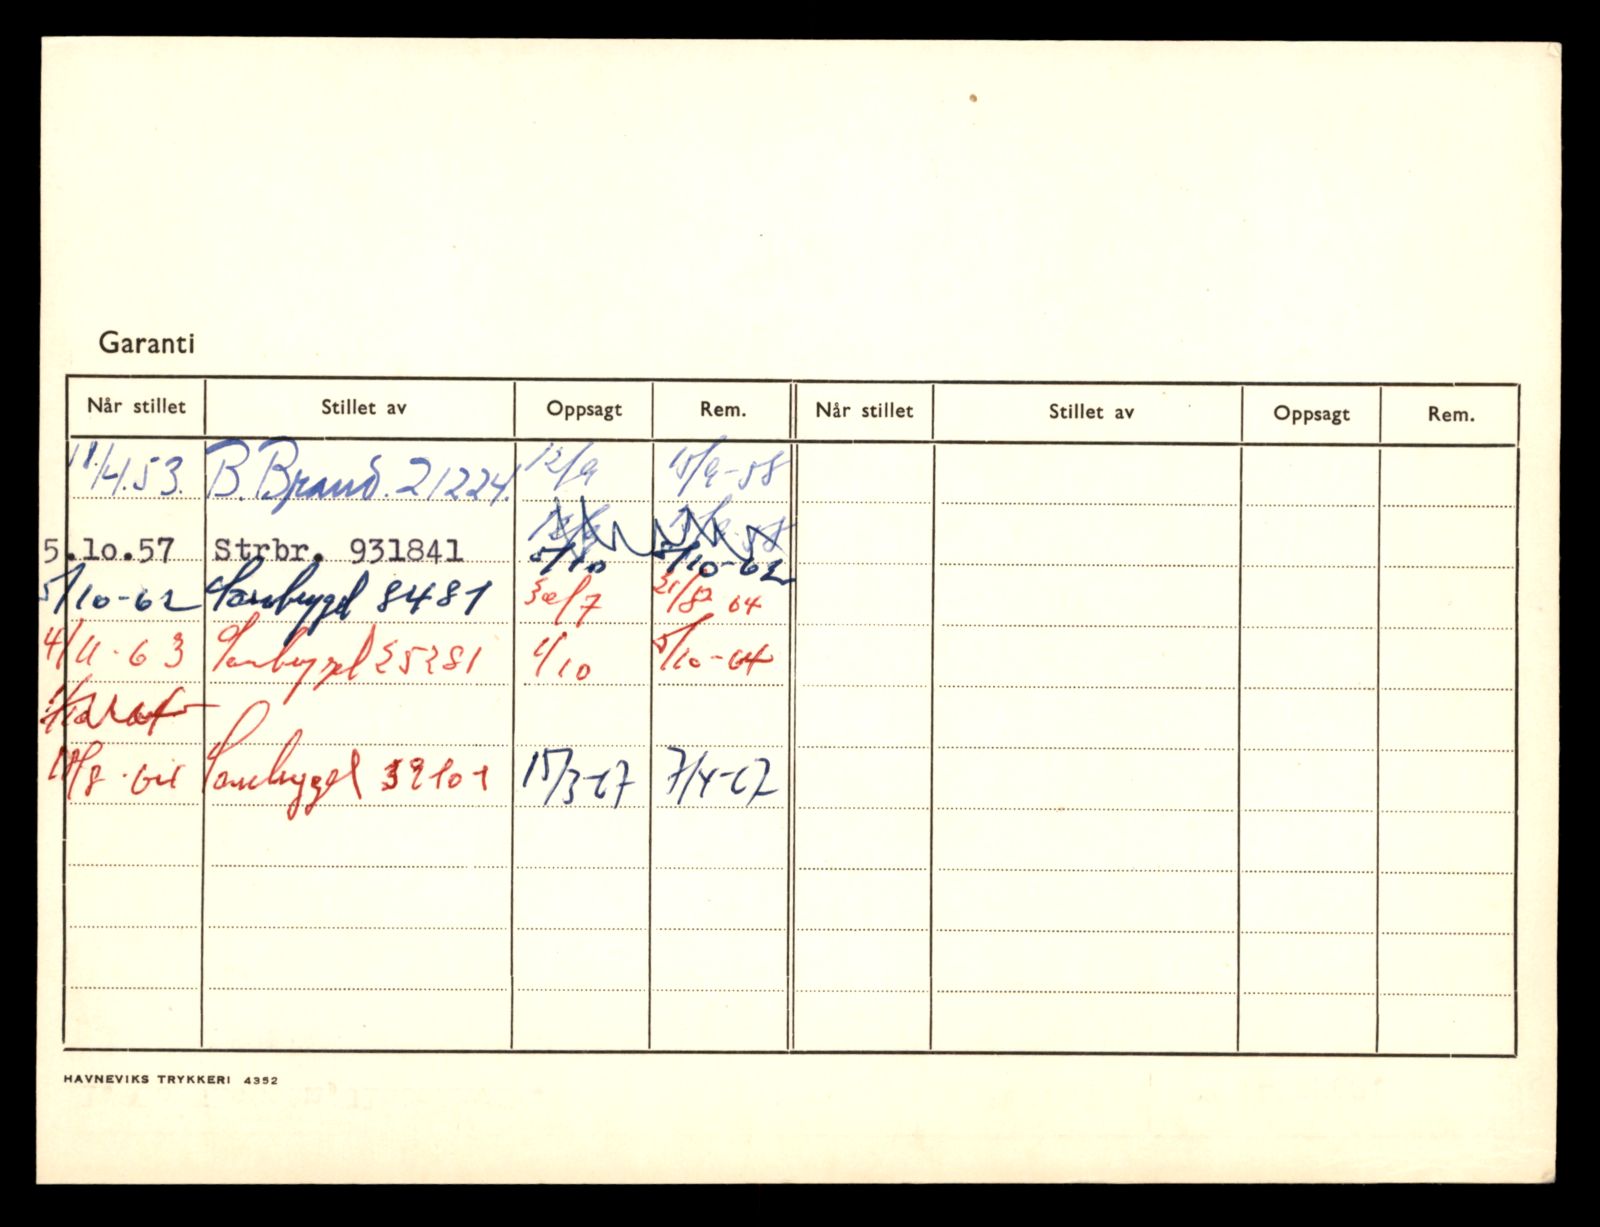 Garanti
Når stillet Stillet av Oppsagt Rem. Når stillet Stillet av Oppsagt Rem.
11/4.53. B. Brand. 21224. 12/9 15/9-58
5.10.57 Strbr. 931841 5/10 5/10-62
5/10-62 Samtrygd 8481 30/7 64
4/11-63 Samtrygd 25281 1/10 5/10-64
Samtrygd 39101 15/3-67 7/4-67
HAVNEVIKS TRYKKERI 4352